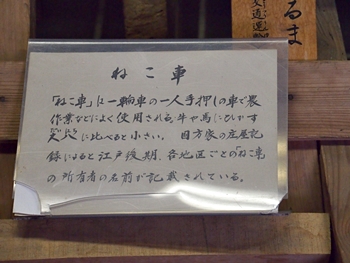 るま
交通運輸
ねこ車
「ねこ車」は一輪車の一人手押しの車で農
作業などによく使用される。牛や馬にひかす
に比べると小さい。目方家の庄屋記
録によると江戸後期、各地区ごとの「ねこ車」
の所有者の名前が記載されている。